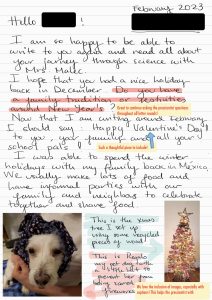 February 2023
Hello !
I am so happy to be able to
write to you again and read all about
your journey through science with
Mrs. Malec.
I hope that you had a nice holiday
back in December. Do you have
a family tradition or festivities
around New Year's?
Great to continue asking the prescientist questions
throughout all letter rounds!
Now that I am writing around February
I should say: Happy Valentine's Day!
to you, your family and all your
school pals!
Such a thoughtful piece to include!
I was able to spend the winter
holidays with my family back in Mexico.
We usually make lots of food and
have informal parties with our
family and neighbors to celebrate
together and share food.
This is the xmas
tree I set up
using some recycled
pieces of wood!
This is
my pet dog with
a little
prevent her from
being scared
fireworks
We love the inclusion of images, especially with
captions! This helps the prescientist